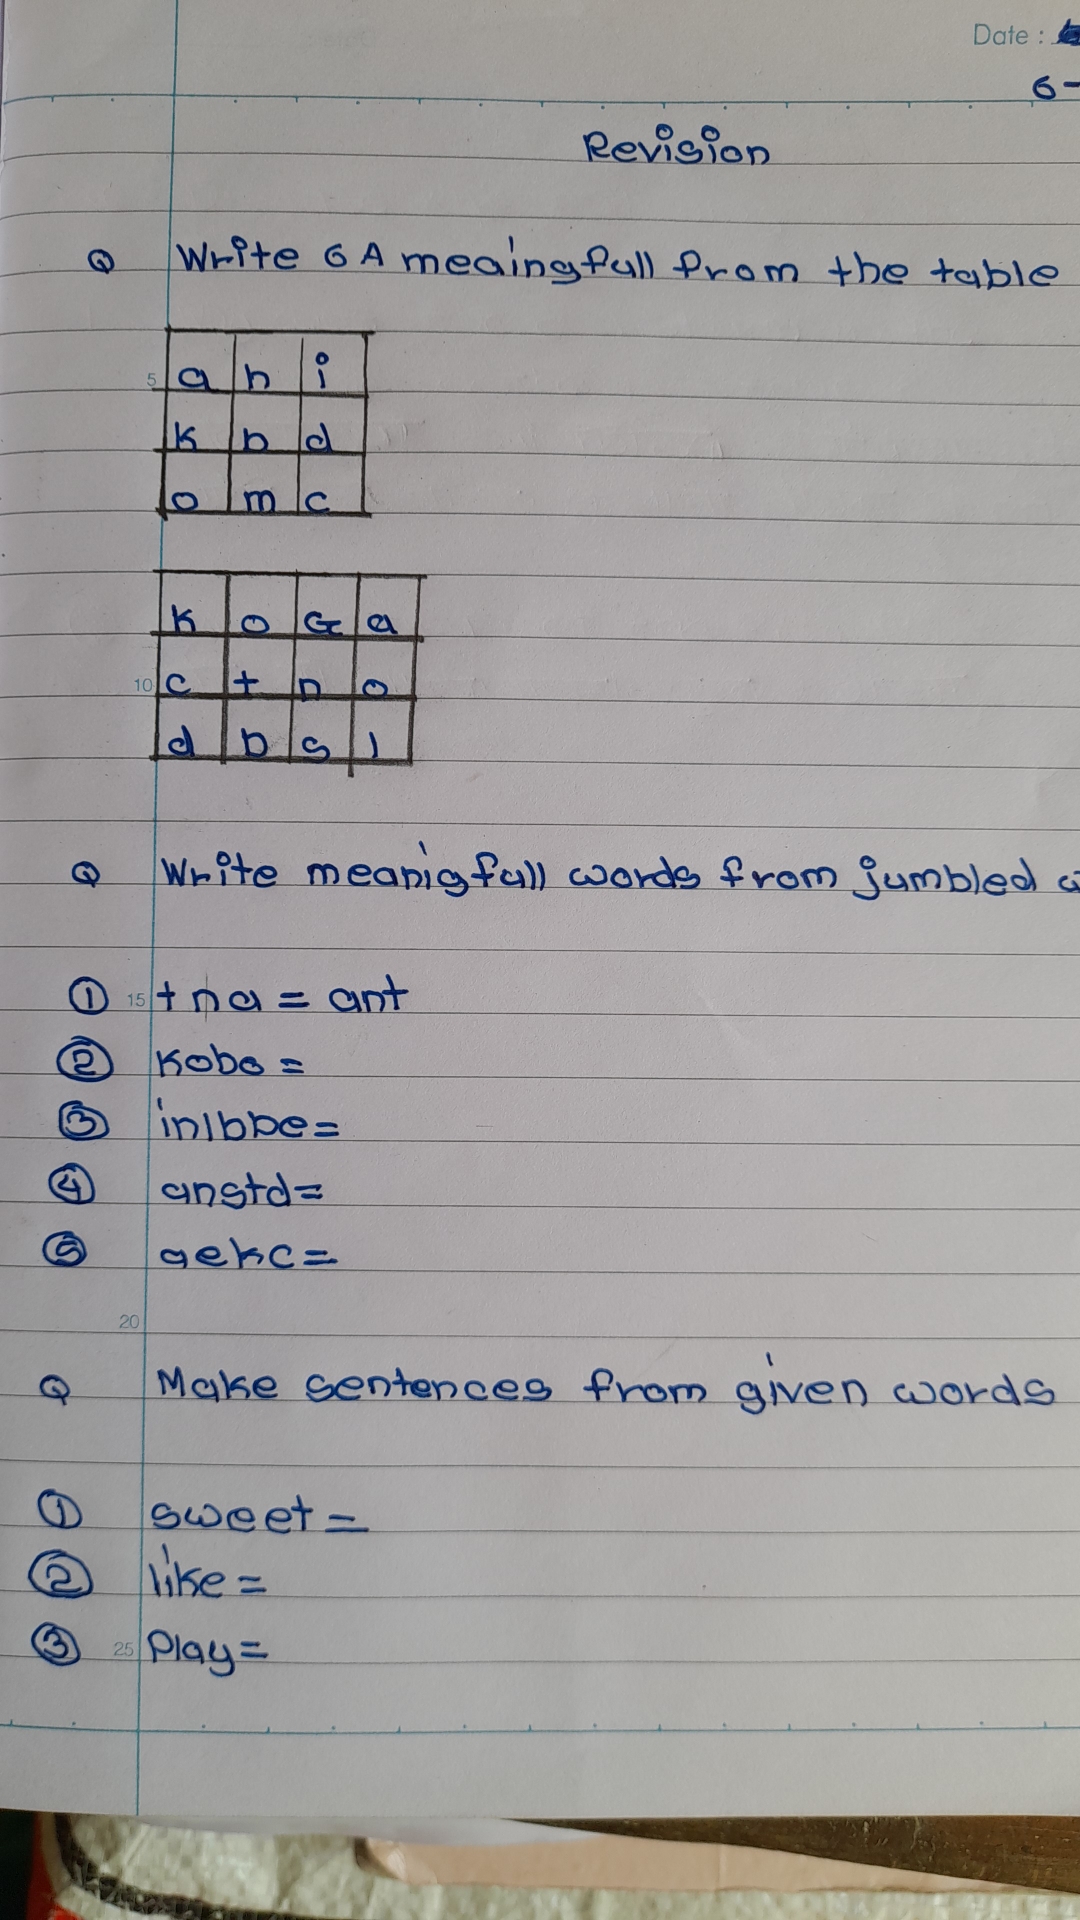 Date :
6-
Revision
Q Write 6 A meaingfull from the table
a h i
5 k b d
o m c
k o G a
10 c t n o
d b s l
Q Write meanigfull words from jumbled
① 15 tna = ant
② kobo =
③ in1bbe=
④ anstd=
⑤ aekc=
20
Q Make sentences from given words
① sweet =
② like =
③ 25 Play=